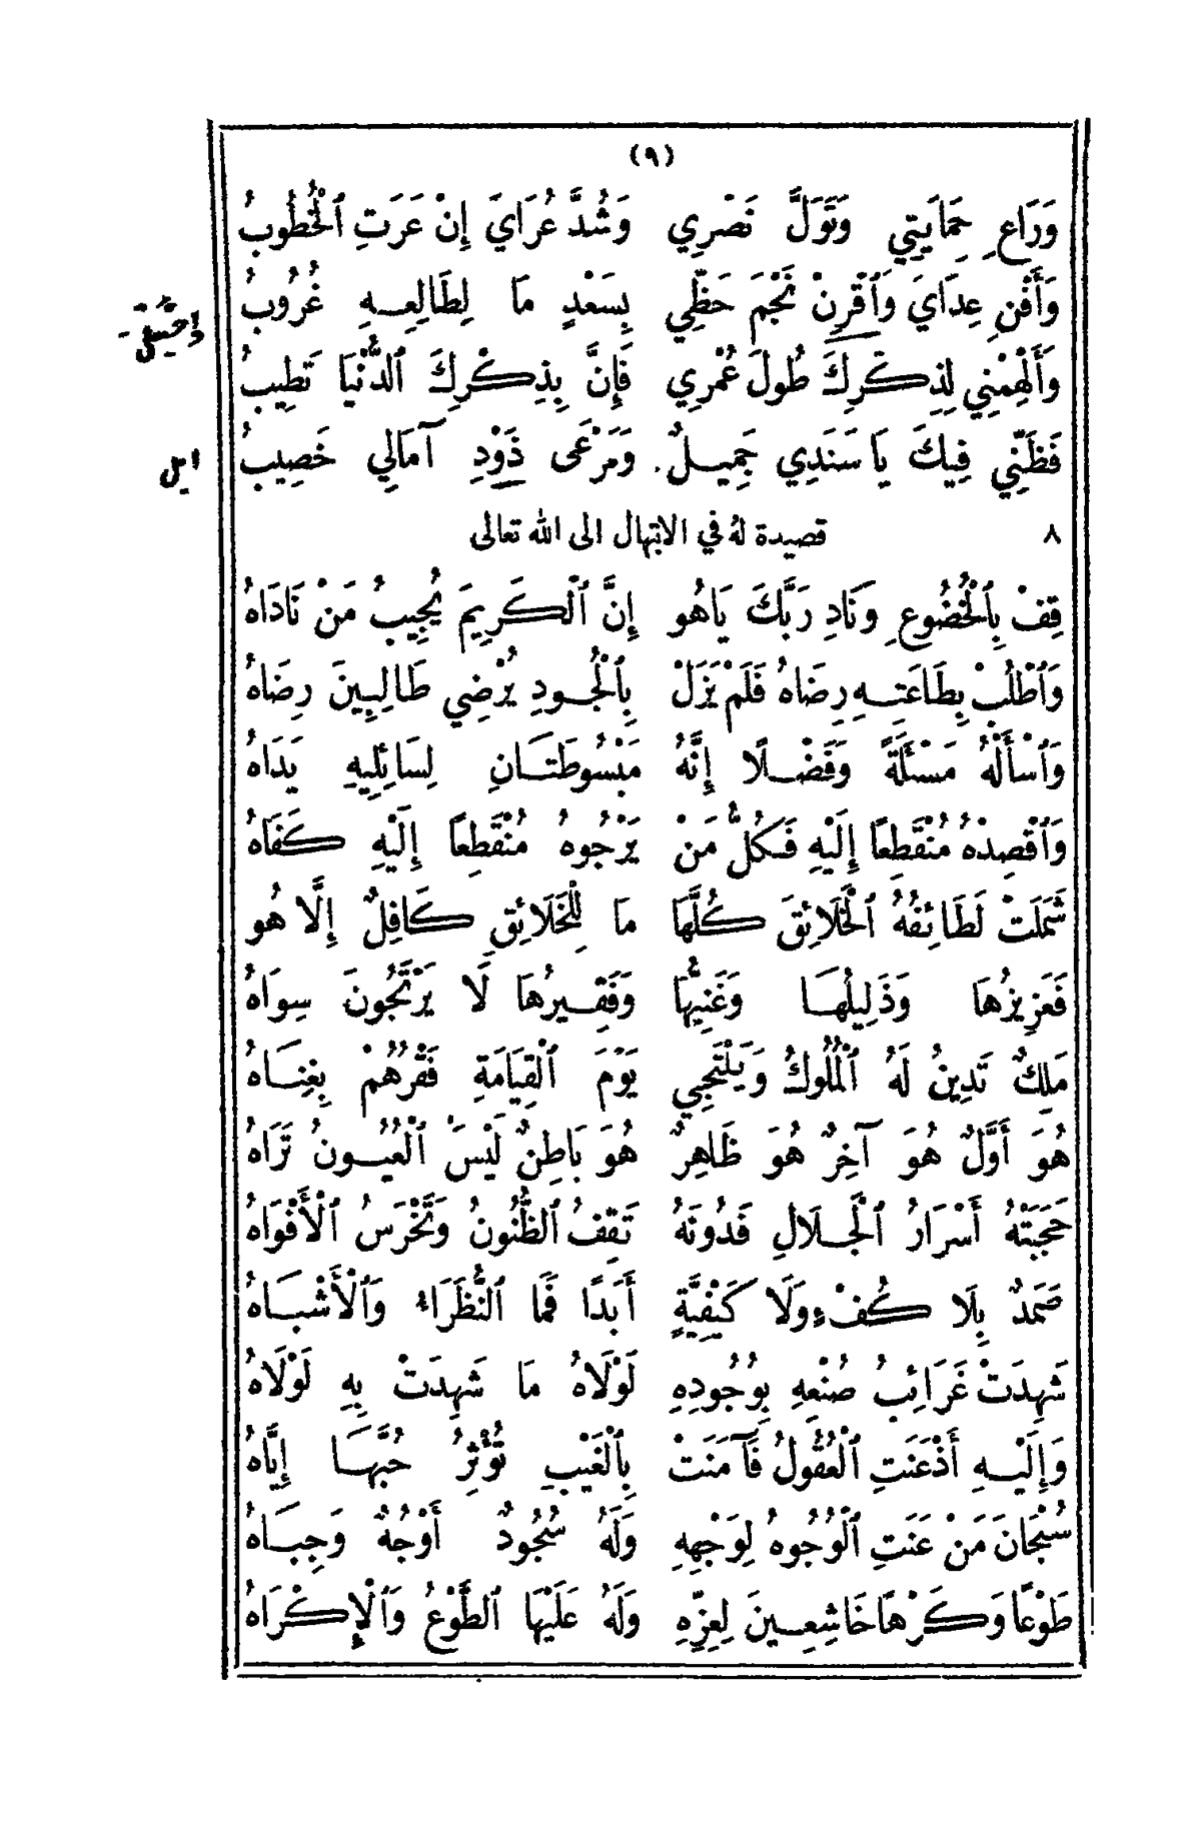 (٩)
وَرَاعِ حِمَايَتِي وَتَوَلَّ نَصْرِي وَشُدَّ عُرَايَ إِنْ عَرَتِ ٱلْخُطُوبُ
وَأَفْنِ عِدَايَ وَٱقْرِنْ نَجْمَ حَظِّي بِسَعْدٍ مَا لِطَالِعِهِ غُرُوبُ
وَأَلْهِمْنِي لِذِكْرِكَ طُولَ عُمْرِي فَإِنَّ بِذِكْرِكَ ٱلدُّنْيَا تَطِيبُ
فَظَنِّي فِيكَ يَا سَنَدِي جَمِيلٌ. وَمَرْعَى ذَوْدِ آمَالِي خَصِيبُ
ابل
٨ قصيدة لهُ في الابتهال الى الله تعالى
قِفْ بِٱلْخُضُوعِ وَنَادِ رَبَّكَ يَاهُو إِنَّ ٱلْكَرِيمَ يُجِيبُ مَنْ نَادَاهُ
وَٱطْلُبْ بِطَاعَتِهِ رِضَاهُ فَلَمْ يَزَلْ بِٱلْجُودِ يُرْضِي طَالِبِينَ رِضَاهُ
وَٱسْأَلْهُ مَسْئَلَةً وَفَضْلًا إِنَّهُ مَبْسُوطَتَانِ لِسَائِلِيهِ يَدَاهُ
وَٱقْصِدْهُ مُنْقَطِعًا إِلَيْهِ فَكُلُّ مَنْ يَرْجُوهُ مُنْقَطِعًا إِلَيْهِ كَفَاهُ
شَمَلَتْ لَطَائِفُهُ ٱلْخَلَائِقَ كُلَّهَا مَا لِلْخَلَائِقِ كَافِلٌ إِلَّا هُو
فَعَزِيزُهَا وَذَلِيلُهَا وَغَنِيُّهَا وَفَقِيرُهَا لَا يَرْتَجُونَ سِوَاهُ
مَلِكٌ تَدِينُ لَهُ ٱلْمُلُوكُ وَيَلْتَجِي يَوْمَ ٱلْقِيَامَةِ فَقْرُهُمْ بِغِنَاهُ
هُوَ أَوَّلٌ هُوَ آخِرٌ هُوَ ظَاهِرٌ هُوَ بَاطِنٌ لَيْسَ ٱلْعُيُونُ تَرَاهُ
حَجَبَتْهُ أَسْرَارُ ٱلْجَلَالِ فَدُونَهُ تَقِفُ ٱلظُّنُونُ وَتَخْرَسُ ٱلْأَفْوَاهُ
صَمَدٌ بِلَا كُفْءٍ وَلَا كَيْفِيَّةٍ أَبَدًا فَمَا ٱلنُّظَرَاءُ وَٱلْأَشْبَاهُ
شَهِدَتْ غَرَائِبُ صُنْعِهِ بِوُجُودِهِ لَوْلَاهُ مَا شَهِدَتْ بِهِ لَوْلَاهُ
وَإِلَيْهِ أَذْعَنَتِ ٱلْعُقُولُ فَآمَنَتْ بِٱلْغَيْبِ تُؤْثِرُ حُبَّهَا إِيَّاهُ
سُبْحَانَ مَنْ عَنَتِ ٱلْوُجُوهُ لِوَجْهِهِ وَلَهُ سُجُودٌ أَوْجُهٌ وَجِبَاهُ
طَوْعًا وَكَرْهًا خَاشِعِينَ لِعِزِّهِ وَلَهُ عَلَيْهَا ٱلطَّوْعُ وَٱلْإِكْرَاهُ